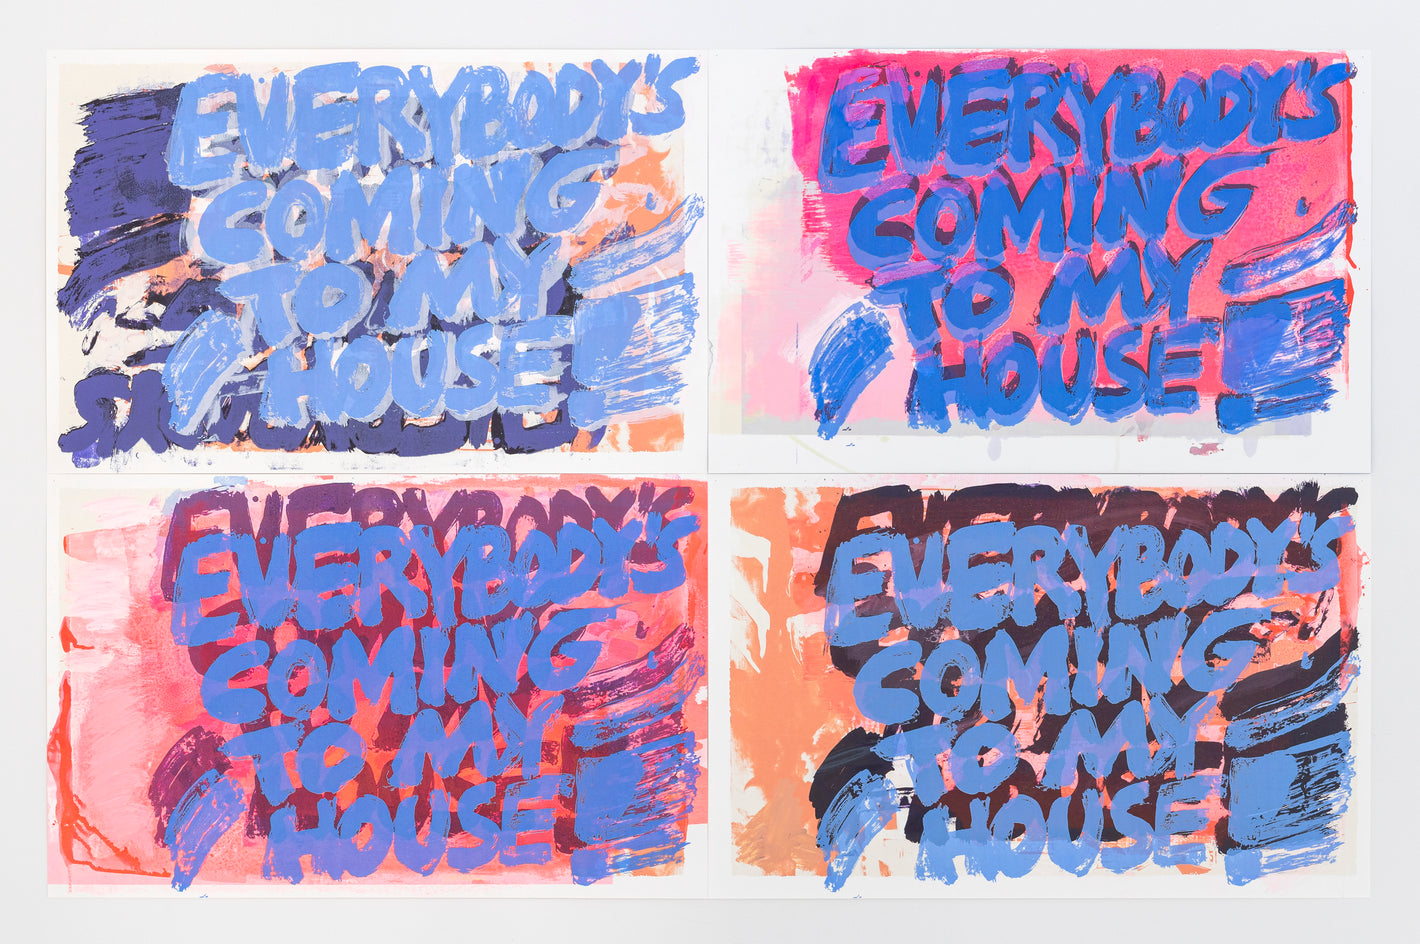 EVERYBODY'S
COMING
TO MY
HOUSE!
EVERYBODY'S
COMING
TO MY
HOUSE!
EVERYBODY'S
COMING
TO MY
HOUSE!
EVERYBODY'S
COMING
TO MY
HOUSE!